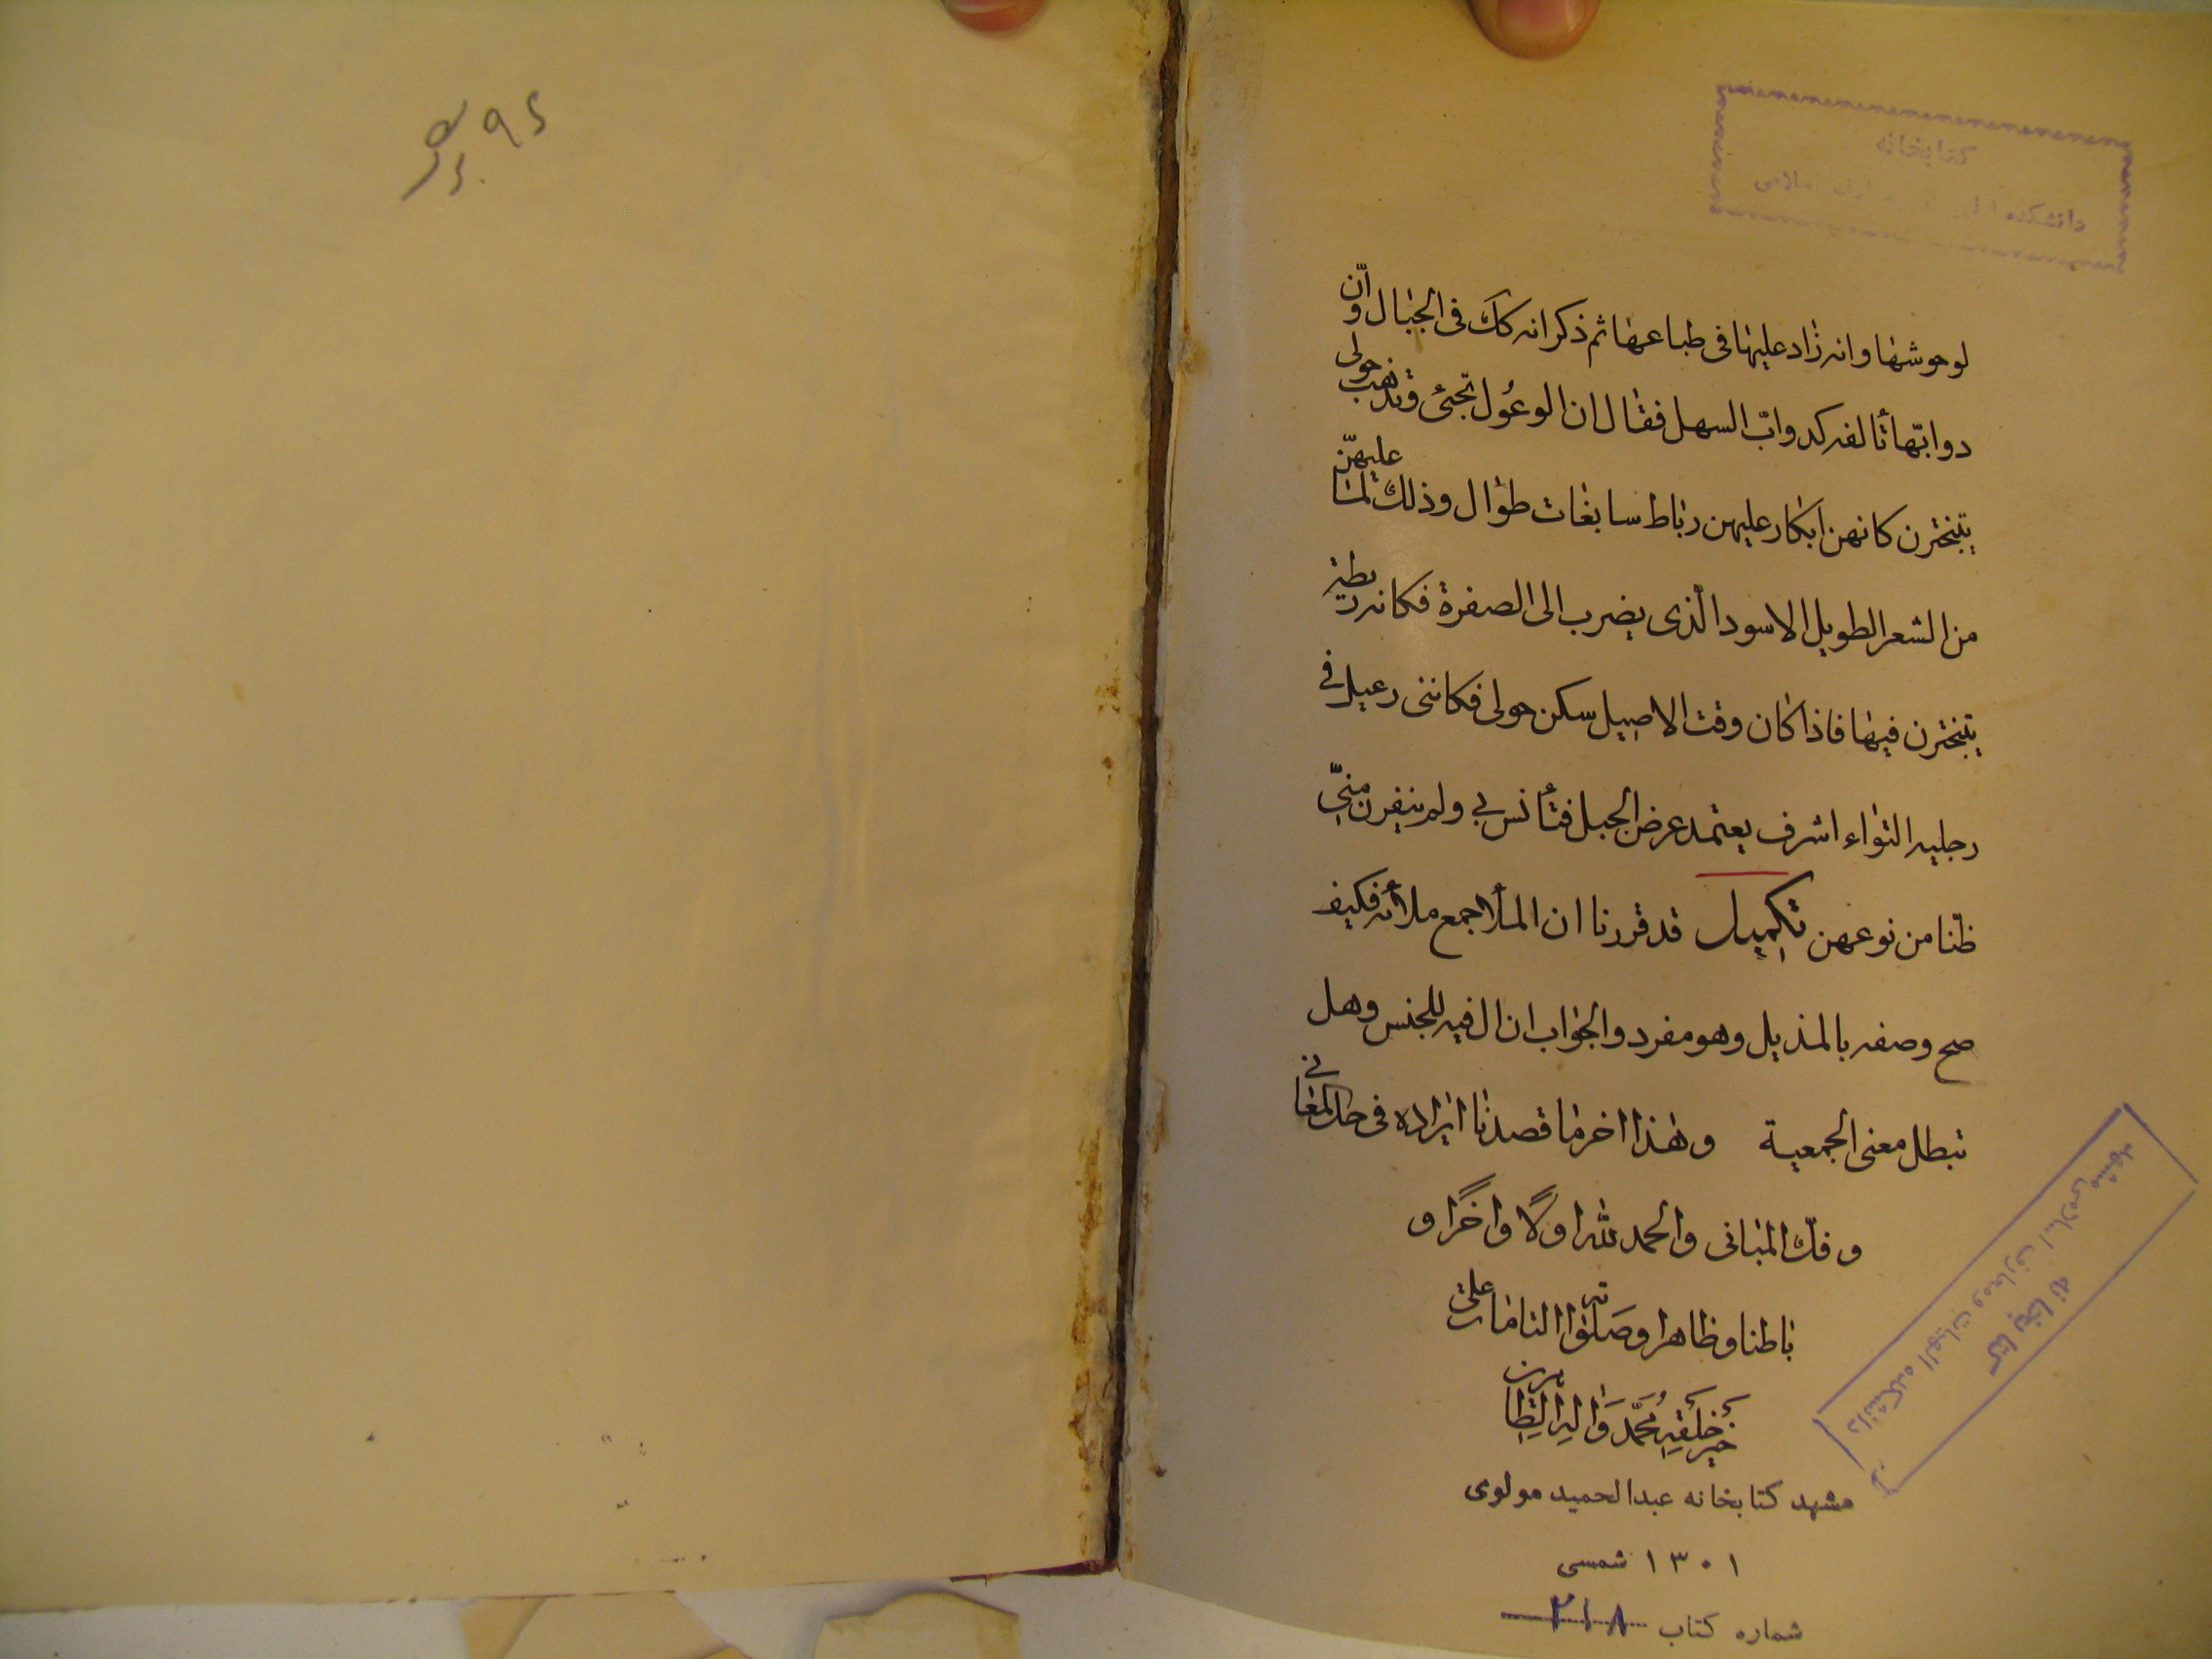 کتابخانه
دانشکده
لوحوشها وانه زاد علیها فی طباعها ثم ذکر انه کک فی الجبال وان
دوابّها تألفه کدوابّ السهل فقال ان الوعُول تجیٔ وتذهب حولی
یتبخترن کانهن ابکار علیهن رباط سابغات طوال وذلک لما علیهنّ
من الشعر الطویل الاسود الّذی یضرب الی الصفرة فکانه ریطة
یتبخترن فیها فاذا کان وقت الاصیل سکن حولی فکاننی رعیل فی
رجلیه التواء اشرف یعتمد عرض الجبل فتأنس بی ولم ینفرن منّی
ظنا من نوعهن تکمیل قد قررنا ان الملأ جمع ملاءة فکیف
صح وصفه بالمذیل وهو مفرد والجواب ان ال فیه للجنس وهل
تبطل معنی الجمعیة وهذا اخر ما قصدنا ایراده فی حل المغانی
و فکّ المبانی والحمد لله اولًا واخرًا و
باطنا وظاهرا وصلواته التامات علی
خیر خلقه محمّد وَاله الطاهرین
مشهد کتابخانه عبدالحمید مولوی
۱۳۰۱ شمسی
شماره کتاب ۲۱۸
دانشکده الهیات و معارف اسلامی مشهد
کتابخانه